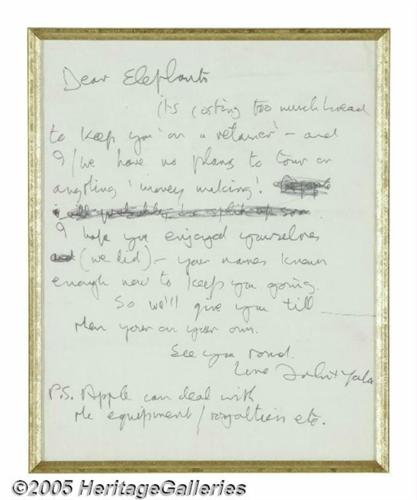 Dear Elephants
its costing too much bread
to keep you 'on a retainer' – and
I/we have no plans to tour or
anything 'money making'!
I hope you enjoyed yourselves
(we did) – your names known
enough now to keep you going.
So we'll give you till
then your on your own.
See you round.
love John + Yoko
P.S. Apple can deal with
the equipment/royalties etc.
©2005 HeritageGalleries